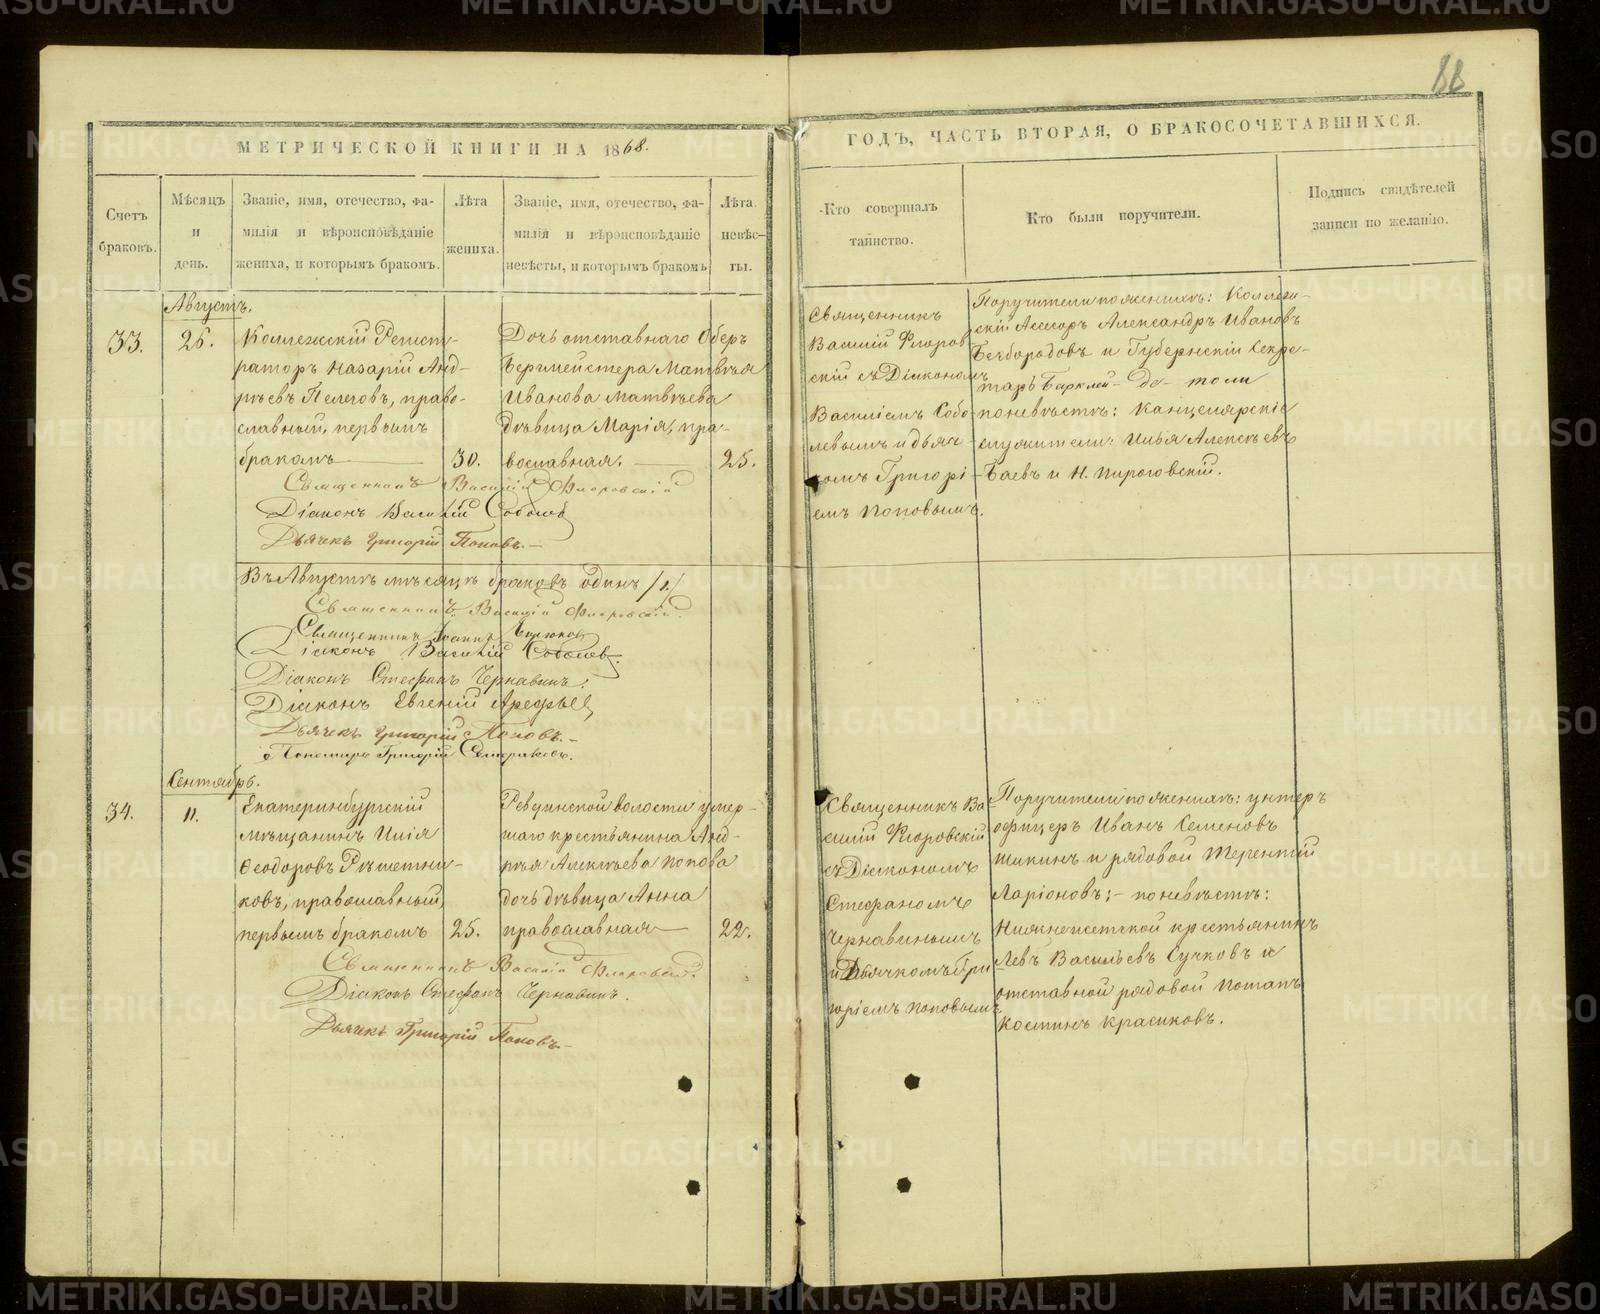 88
МЕТРИЧЕСКОЙ КНИГИ НА 1868.
ГОДЪ, ЧАСТЬ ВТОРАЯ, О БРАКОСОЧЕТАВШИХСЯ.
Счетъ
браковъ.
Мѣсяцъ
и
день.
Званіе, имя, отечество, фа-
милія и вѣроисповѣданіе
жениха, и которымъ бракомъ.
Лѣта
жениха.
Званіе, имя, отечество, фа-
милія и вѣроисповѣданіе
невѣсты, и которымъ бракомъ
Лѣта
невѣс-
ты.
Кто совершалъ
таинство.
Кто были поручители.
Подпись свидѣтелей
записи по желанію.
Августъ.
33.
25.
Коллежскій Регист-
раторъ Назарій Анд-
реевъ Пелеговъ, право-
славный, первымъ
бракомъ
30.
Дочь отставнаго Обер
Бергмейстера Матвѣя
Иванова Матвѣева
дѣвица Марія, пра-
вославная.
25.
Священникъ
Василій Флоров
скій съ Діакономъ
Василіемъ Собо-
левымъ и дьяч-
комъ Григорі-
емъ Поповымъ.
Поручители по женихѣ: Коллеж-
скій Асессоръ Александръ Ивановъ
Безбородовъ и Губернскій Секре-
тарь Барклай-де-толи
по невѣстѣ: Канцелярскіе
служители: Илья Алексѣевъ
Баевъ и Н. Пироговскій.
Священникъ Василій Флоровскій
Діаконъ Василій Соболев
Дьячекъ Григорій Поповъ.
Въ Августѣ мѣсяцѣ браковъ одинъ /1/
Священникъ Василій Флоровскій.
Священникъ Іоаннъ
Діаконъ Василій Соболев.
Діаконъ Стефанъ Чернавинъ.
Діаконъ Евгеній Арефьев
Дьячекъ Григорій Поповъ.
Пономарь Григорій
Сентябрь.
34.
11.
Екатеринбургскій
мѣщанинъ Илія
Ѳеодоровъ Рѣшетни-
ковъ, православный,
первымъ бракомъ
25.
Ревдинской волости умер-
шаго крестьянина Анд-
рѣя Алексѣева Попова
дочь дѣвица Анна
православная
22.
Священникъ Ва
силій Флоровскій
съ Діакономъ
Стефаномъ
Чернавинымъ
и Дьячкомъ Гри
горіемъ Поповымъ
Поручители по женихѣ: унтеръ
офицеръ Иванъ Семеновъ
Шикинъ и рядовой Терентій
Ларіоновъ; - по невѣстѣ:
Нижнеисетской крестьянинъ
Левъ Васильевъ Сучковъ и
отставной рядовой Потапъ
Костинъ Красиковъ.
Священникъ Василій Флоровскій.
Діаконъ Стефанъ Чернавинъ.
Дьячекъ Григорій Поповъ.
METRIKI.GASO-URAL.RU